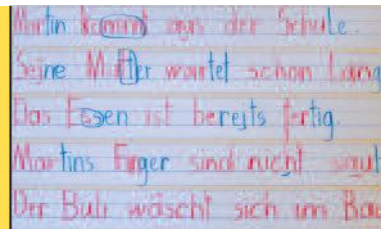 Martin kommt aus der Schule.
Seine Mutter wartet schon lang
Das Essen ist bereits fertig.
Martins Finger sind nicht saub
Der Bub wäscht sich im Bad